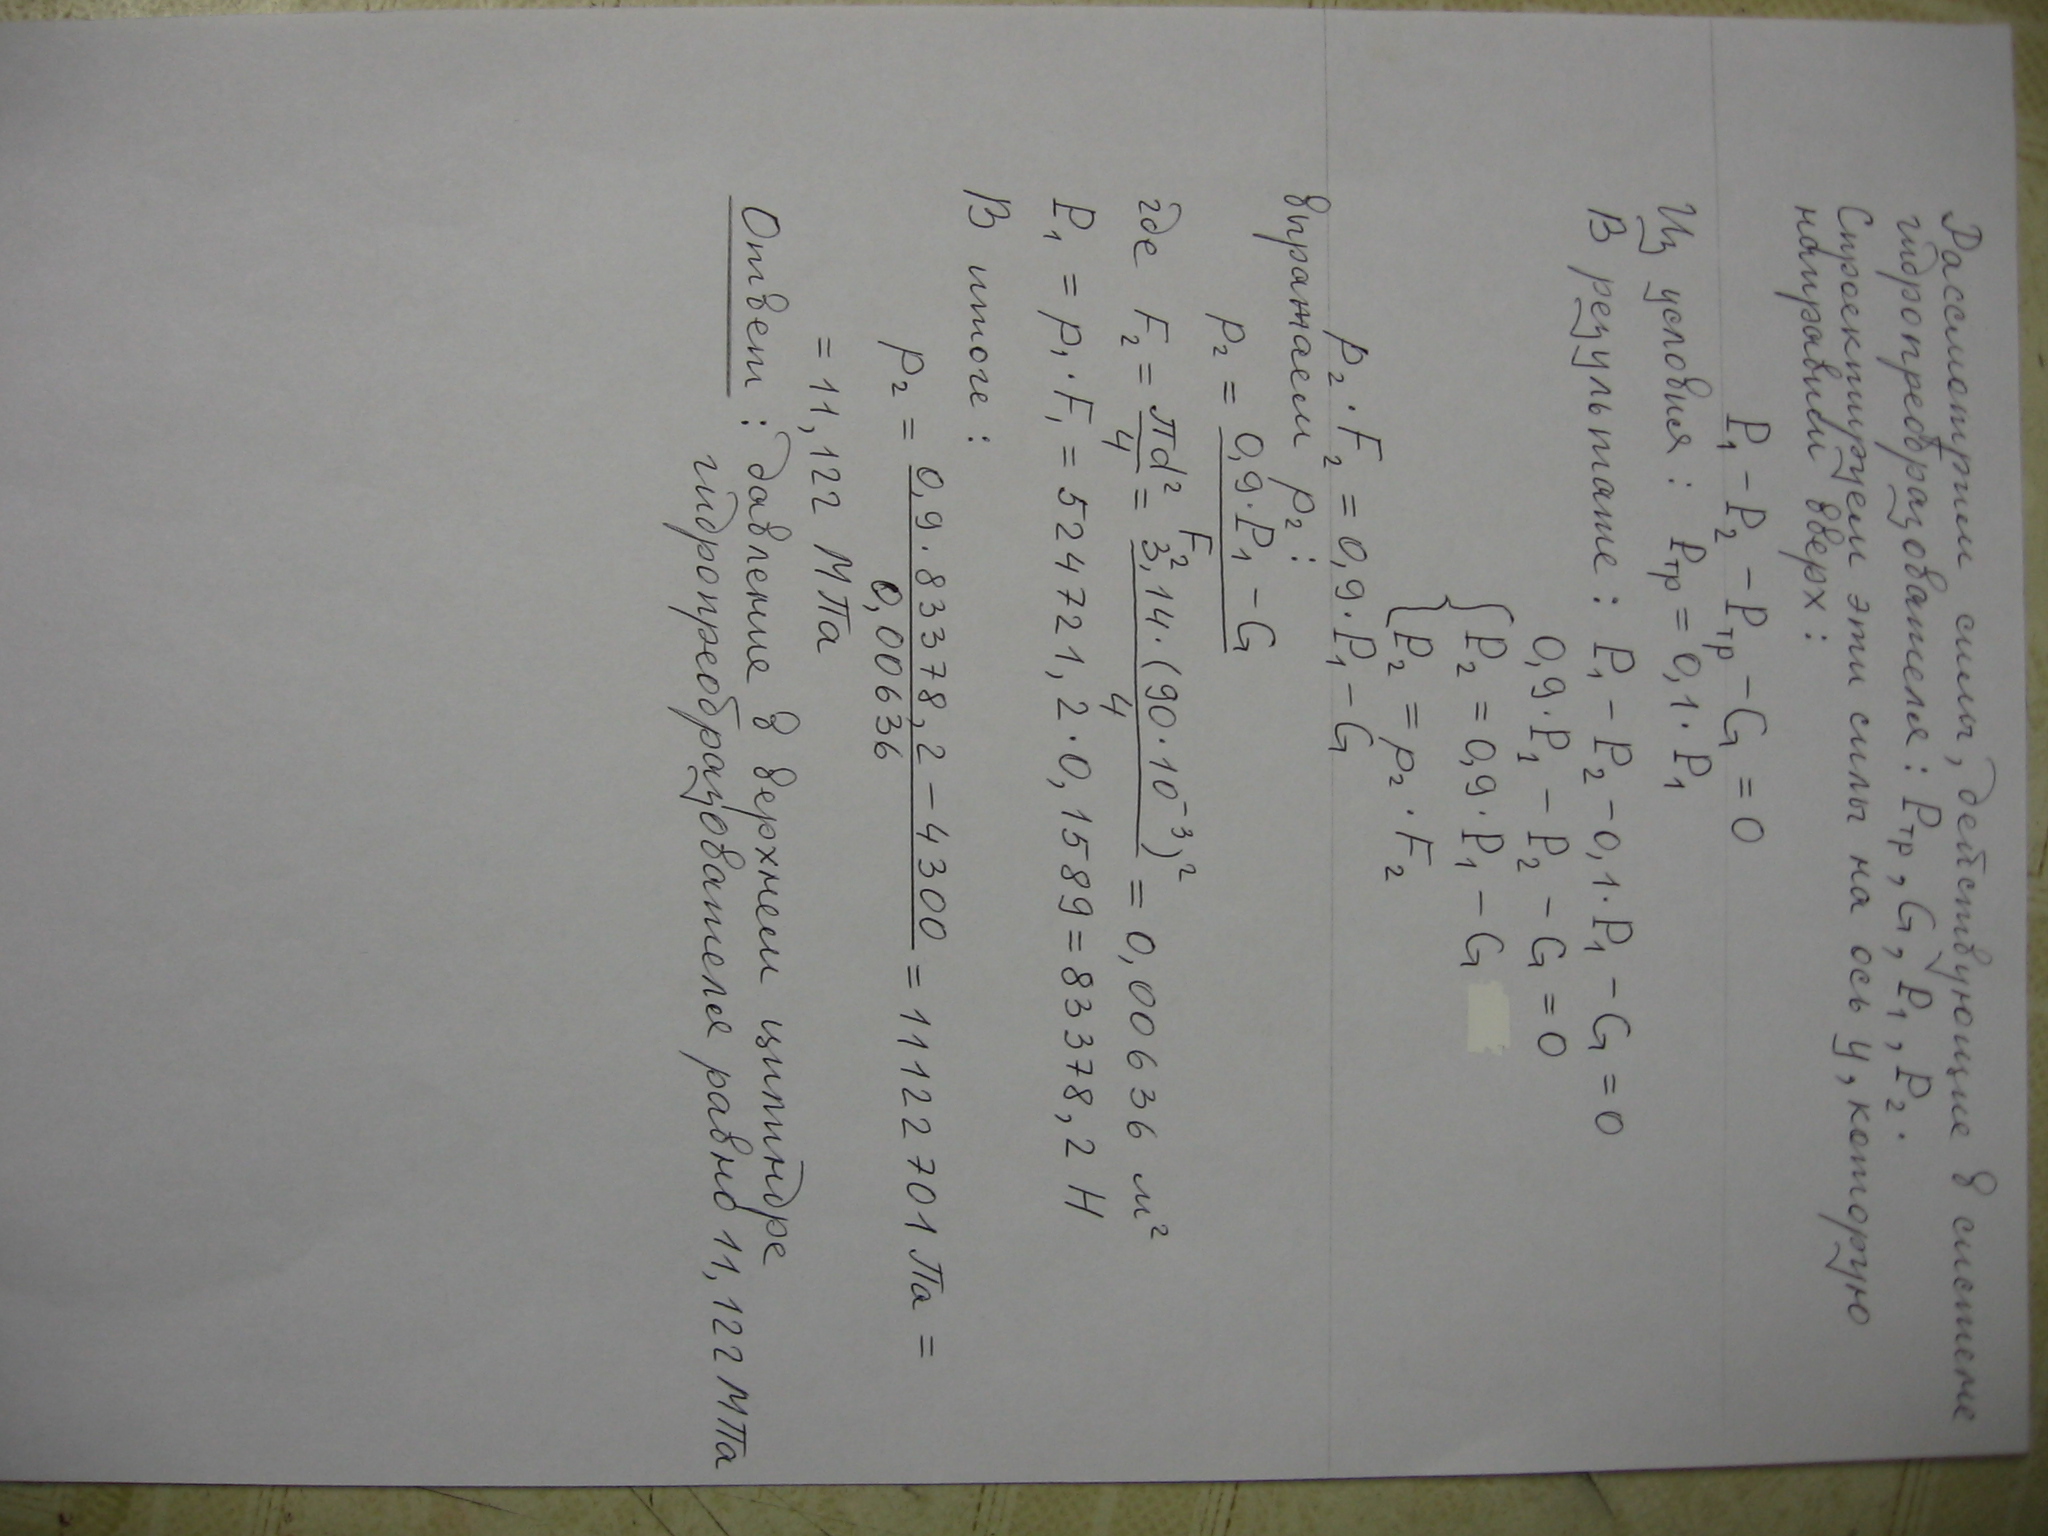 Рассмотрим силы, действующие в системе
гидропреобразователя: Pтр, G, P₁, P₂.
Спроектируем эти силы на ось y, которую
направим вверх:
P₁ - P₂ - Pтр - G = 0
Из условия: Pтр = 0,1 · P₁
В результате: P₁ - P₂ - 0,1 · P₁ - G = 0
0,9 · P₁ - P₂ - G = 0
{ P₂ = 0,9 · P₁ - G
{ P₂ = p₂ · F₂
p₂ · F₂ = 0,9 · P₁ - G
выражаем p₂:
p₂ = (0,9 · P₁ - G) / F₂
где F₂ = πd²/4 = 3,14 · (90 · 10⁻³)² / 4 = 0,00636 м²
P₁ = p₁ · F₁ = 524721,2 · 0,1589 = 83378,2 Н
В итоге:
p₂ = (0,9 · 83378,2 - 4300) / 0,00636 = 11122701 Па =
= 11,122 МПа
Ответ: давление в верхнем цилиндре
гидропреобразователя равно 11,122 МПа